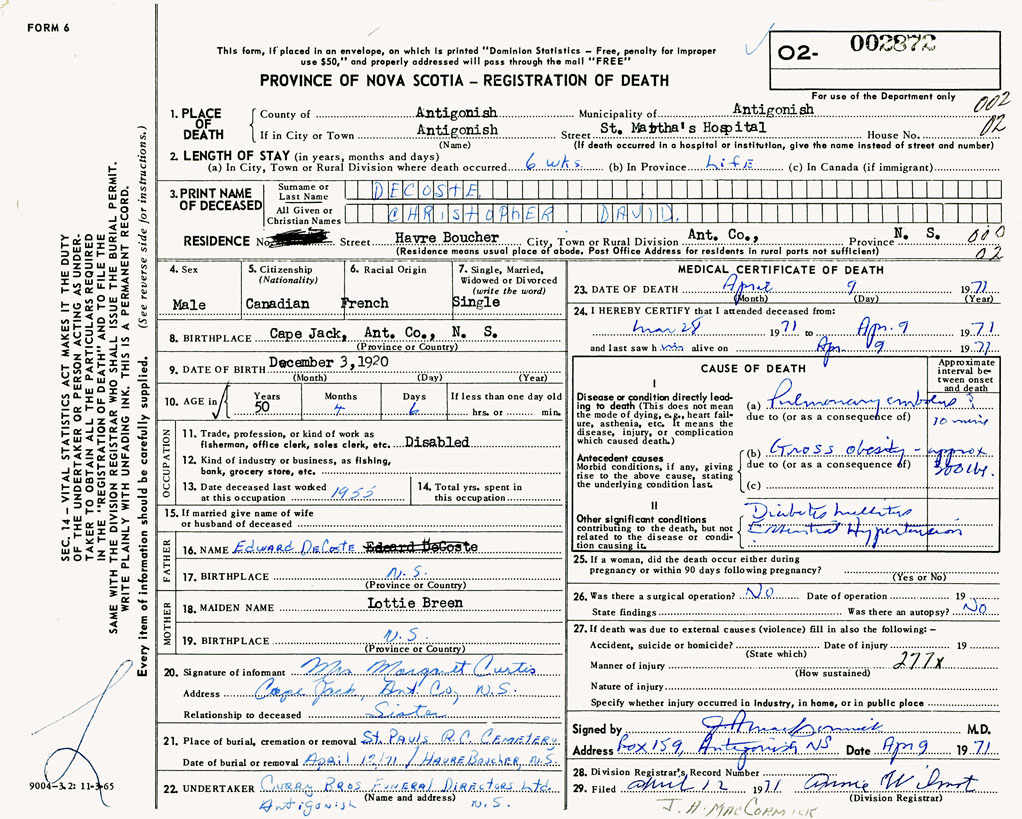 FORM 6
This form, if placed in an envelope, on which is printed "Dominion Statistics – Free, penalty for improper
use $50," and properly addressed will pass through the mail "FREE"
PROVINCE OF NOVA SCOTIA – REGISTRATION OF DEATH
02- 002872
For use of the Department only
002
02
1. PLACE OF DEATH
County of Antigonish Municipality of Antigonish
If in City or Town Antigonish Street St. Martha's Hospital House No.
(Name) (If death occurred in a hospital or institution, give the name instead of street and number)
2. LENGTH OF STAY (in years, months and days)
(a) In City, Town or Rural Division where death occurred 6 wks. (b) In Province Life (c) In Canada (if immigrant)
3. PRINT NAME OF DECEASED
Surname or Last Name DECOSTE
All Given or Christian Names CHRISTOPHER DAVID.
RESIDENCE No. Street Havre Boucher City, Town or Rural Division Ant. Co., Province N. S.
(Residence means usual place of abode. Post Office Address for residents in rural parts not sufficient)
000
02
4. Sex Male
5. Citizenship (Nationality) Canadian
6. Racial Origin French
7. Single, Married, Widowed or Divorced (write the word) Single
8. BIRTHPLACE Cape Jack, Ant. Co., N. S.
(Province or Country)
9. DATE OF BIRTH December 3, 1920
(Month) (Day) (Year)
10. AGE in Years 50 Months 4 Days 6 If less than one day old
hrs. or min.
OCCUPATION
11. Trade, profession, or kind of work as
fisherman, office clerk, sales clerk, etc. Disabled
12. Kind of industry or business, as fishing,
bank, grocery store, etc.
13. Date deceased last worked at this occupation 1955
14. Total yrs. spent in this occupation
15. If married give name of wife
or husband of deceased
FATHER
16. NAME Edward DeCoste Edcard DeCoste
17. BIRTHPLACE N.S.
(Province or Country)
MOTHER
18. MAIDEN NAME Lottie Breen
19. BIRTHPLACE N.S.
(Province or Country)
20. Signature of informant Mrs Margaret Curtis
Address Cape Jack, Ant. Co, N.S.
Relationship to deceased Sister
21. Place of burial, cremation or removal St. Pauls R.C. Cemetery
Date of burial or removal April 12/71 / Havre Boucher, N.S.
22. UNDERTAKER Curry Bros Funeral Directors Ltd.
(Name and address)
Antigonish N.S.
MEDICAL CERTIFICATE OF DEATH
23. DATE OF DEATH April 9 1971
(Month) (Day) (Year)
24. I HEREBY CERTIFY that I attended deceased from:
Mar 28 1971 to Apr. 9 1971
and last saw him alive on Apr. 9 1971
CAUSE OF DEATH
Approximate interval between onset and death
I
Disease or condition directly leading to death (This does not
the mode of dying, e.g., heart failure, asthenia, etc. It means the
disease, injury, or complication
which caused death.)
(a) Pulmonary embolus ?
due to (or as a consequence of) 10 mins
Antecedent causes
Morbid conditions, if any, giving
rise to the above cause, stating
the underlying condition last.
(b) Gross obesity - approx
due to (or as a consequence of) 300 lbs.
(c)
II
Other significant conditions
contributing to the death, but not
related to the disease or condition causing it.
Diabetes Mellitus
Essential Hypertension
25. If a woman, did the death occur either during
pregnancy or within 90 days following pregnancy?
(Yes or No)
26. Was there a surgical operation? No Date of operation 19
State findings Was there an autopsy? No
27. If death was due to external causes (violence) fill in also the following: –
Accident, suicide or homicide? Date of injury 19
(State which)
Manner of injury 277x
(How sustained)
Nature of injury
Specify whether injury occurred in industry, in home, or in public place
Signed by J A MacCormick M.D.
Address Box 159, Antigonish NS Date Apr 9 1971
28. Division Registrar's Record Number
29. Filed April 12 1971 Annie Wilmot
(Division Registrar)
J. A. MacCormick
SEC. 14 – VITAL STATISTICS ACT MAKES IT THE DUTY
OF THE UNDERTAKER OR PERSON ACTING AS UNDER-
TAKER TO OBTAIN ALL THE PARTICULARS REQUIRED
IN THE "REGISTRATION OF DEATH" AND TO FILE THE
SAME WITH THE DIVISION REGISTRAR WHO SHALL ISSUE THE BURIAL PERMIT.
WRITE PLAINLY WITH UNFADING INK. THIS IS A PERMANENT RECORD.
Every item of information should be carefully supplied. (See reverse side for instructions.)
9004-3.2: 11-3-65